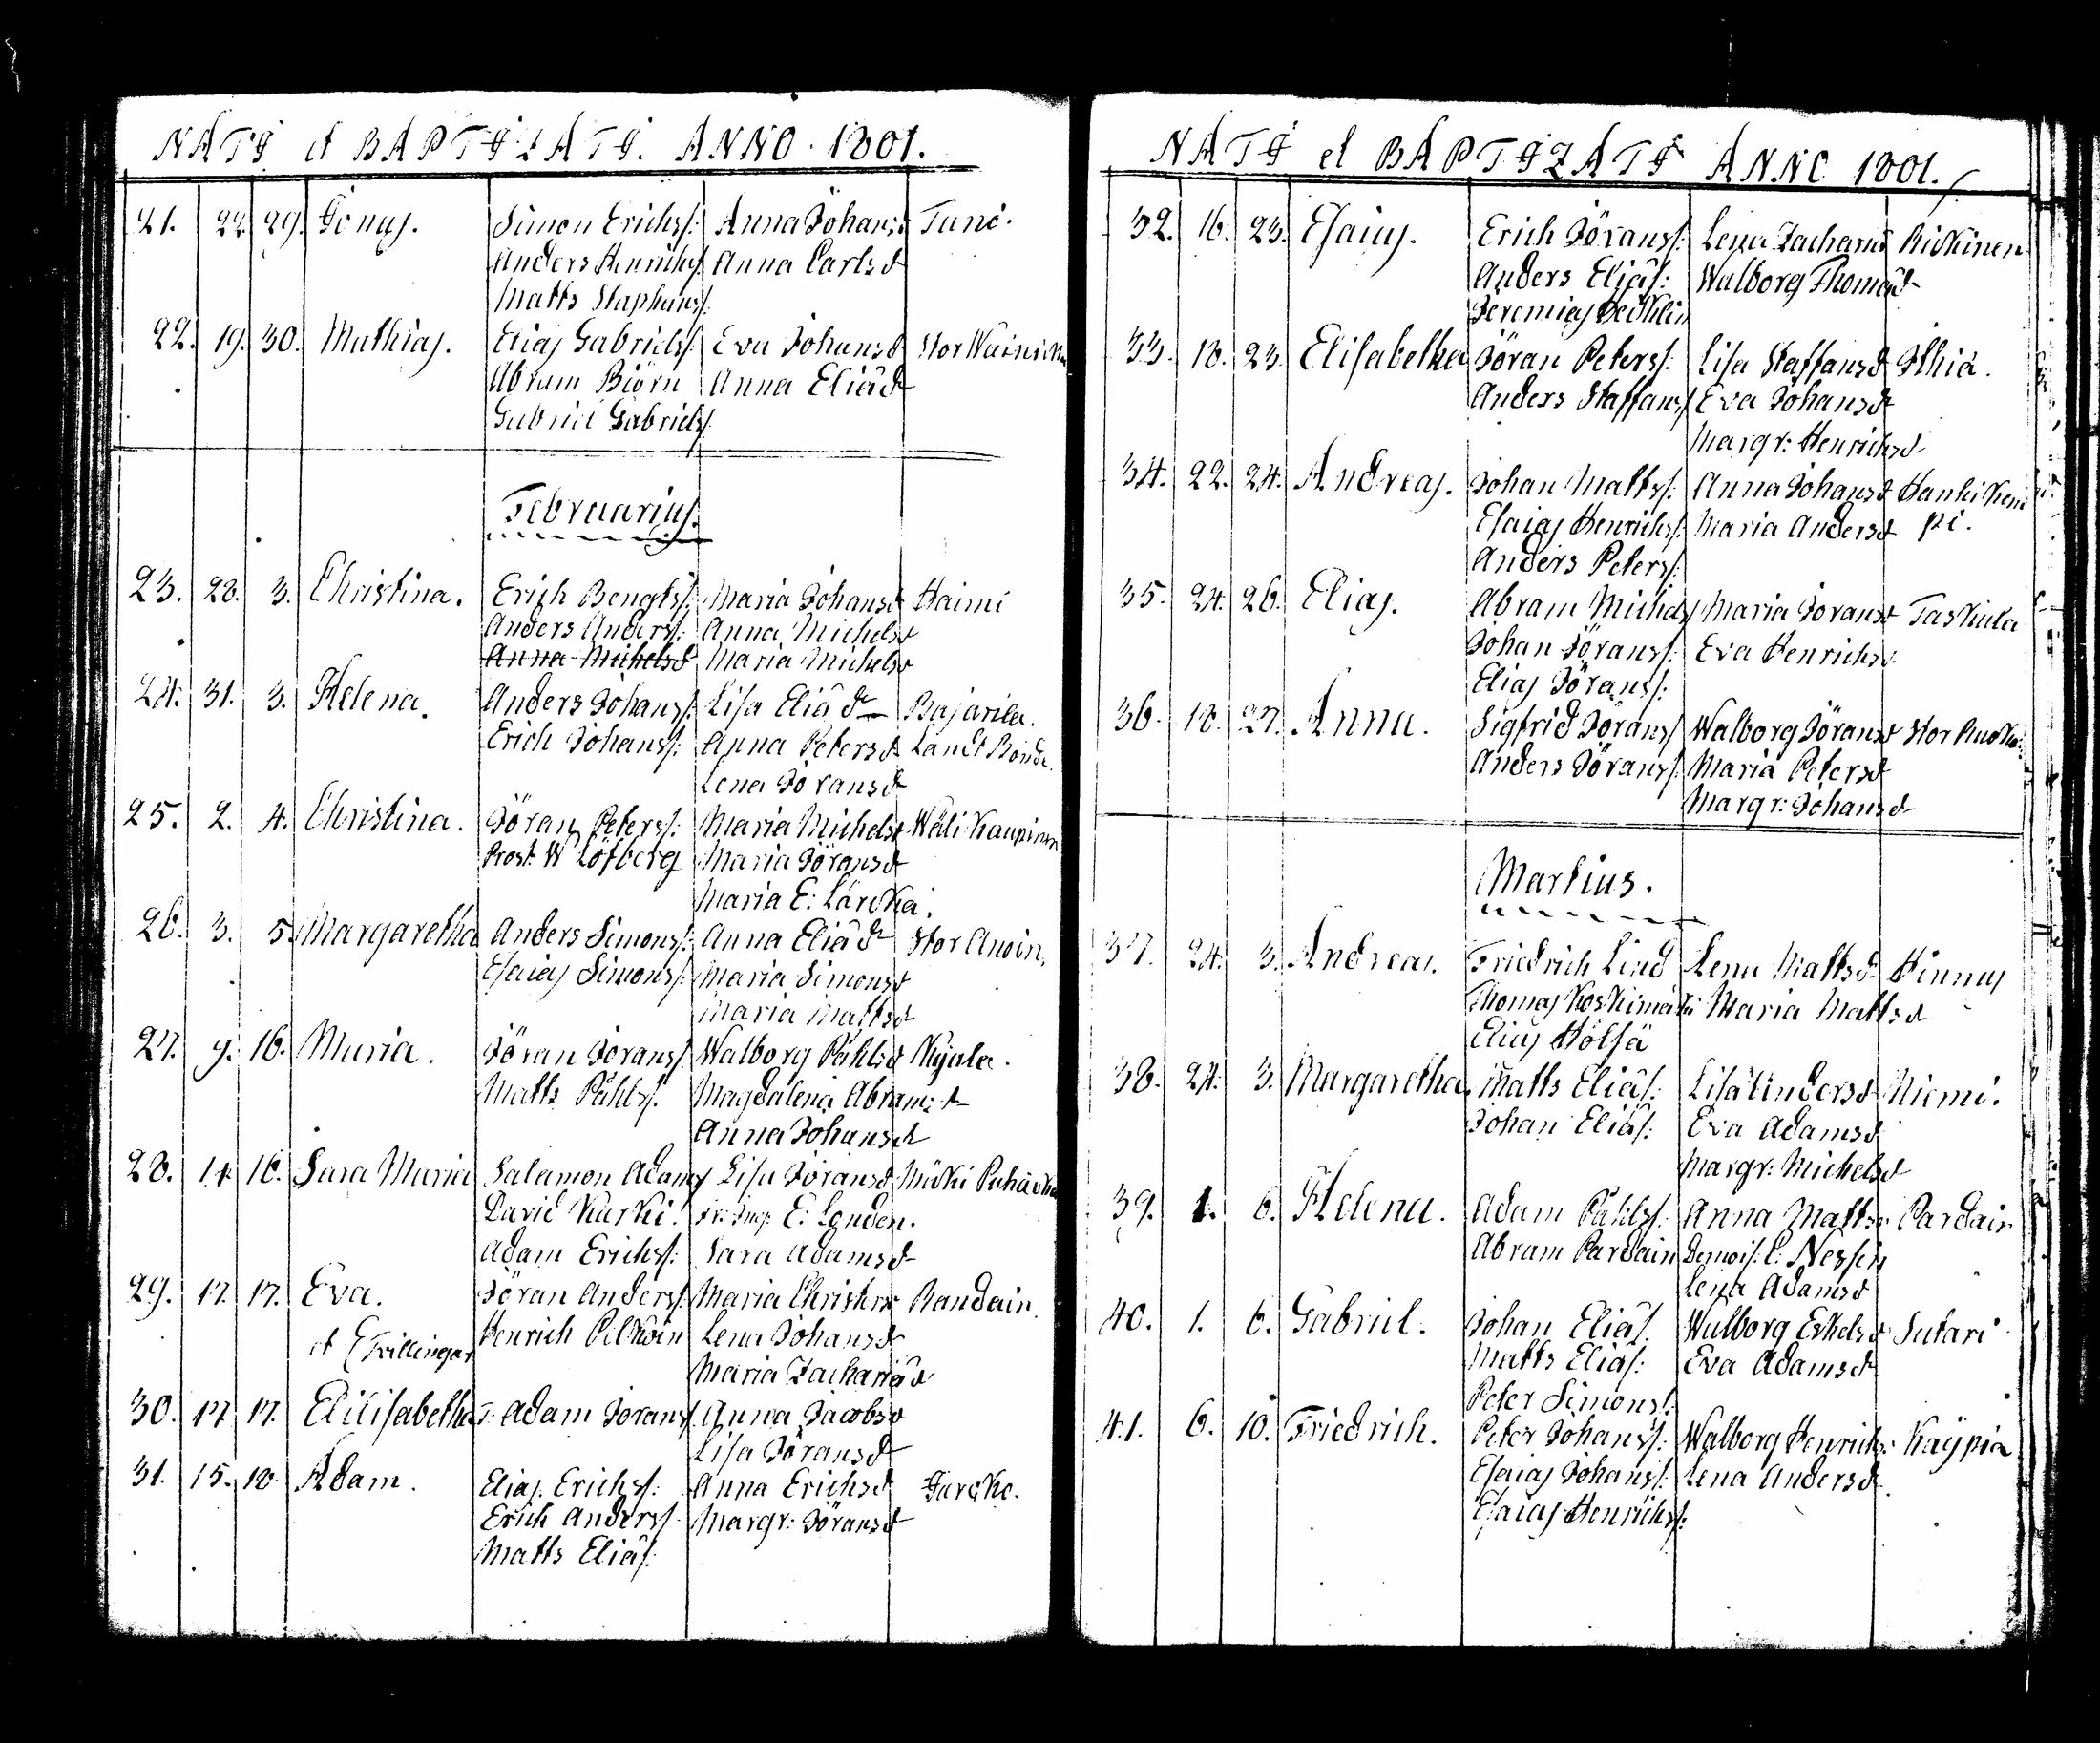 NATI et BAPTIZATI. ANNO. 1801.
21. 22. 29. Jonas. Simon Erichs: Anna Johansd Tuni.
Anders Henrichs Anna Carlsd
Matts Staphans:
22. 19. 30. Mathias. Elias Gabriels: Eva Johansd Stor
Abram Biörn Anna Eliæd
Gabriel Gabriels:
Februarius.
23. 28. 3. Christina. Erich Bengts: Maria Johansd Haimi
Anders Anders: Anna Michelsd
Anna Michelsd Maria Michelsd
24. 31. 3. Helena. Anders Johans: Lisa Eliæd Bajarila.
Erich Johans: Anna Petersd Landt Bonde.
Lena Joransd
25. 2. 4. Christina. Jöran Peters: Maria Michelsd Wäli Kaupinen
Prost: W Löfberg Maria Jöransd
Maria E:
26. 3. 5. Margaretha Anders Simons: Anna Eliæd Stor Anoin.
Esaias Simons: Maria Simonsd
Maria Mattsd
27. 9. 16. Maria. Jöran Jorans: Walborg Påhlsd
Matts Påhls: Magdalena Abramsd
Anna Johansd
28. 14. 16. Sara Maria Salamon Adams Lisa Joransd Mäki
David Kurki. E: Londen.
Adam Erichs: Sara Adamsd
29. 17. 17. Eva. Jöran Anders: Maria Christersd Randain.
et Tvillingar Henrich Pelkoin Lena Johansd
Maria Zachariæd
30. 17. 17. Elilisabetha Adam Jorans: Anna Jacobsd
Lisa Jöransd
31. 15. 18. Adam. Elias Erichs: Anna Erichsd
Erich Anders: Margr: Jöransd
Matts Eliæs:
NATI et BAPTIZATI ANNO 1801.
32. 16. 23. Esaias. Erich Jörans: Lena Zachariæd Rickinen
Anders Eliæs: Walborg Thomæd
Jeremias
33. 18. 23. Elisabetha Jöran Peters: Lisa Staffansd Ithiä.
Anders Staffans: Eva Johansd
Margr: Henrichsd
34. 22. 24. Andreas. Johan Matts: Anna Johansd Hanhi Kem
Esaias Henrichs: Maria Andersd pi.
Anders Peters:
35. 24. 26. Elias. Abram Michels Maria Joransd Taskula
Johan Jörans: Eva Henrichsd
Elias Jörans:
36. 18. 27. Anna. Sigfrid Jörans Walborg Jöransd Stor
Anders Jörans: Maria Petersd
Margr: Johansd
Martius.
37. 24. 3. Andreas. Friedrich Lind Lena Mattsd Hinnus
Thomas Koskimäki Maria Mattsd
Elias Hölsä
38. 24. 3. Margaretha Matts Eliæs: Lisa Andersd Niemi.
Johan Eliæs: Eva Adamsd
Margr: Michelsd
39. 1. 6. Helena. Adam Påhls: Anna Mattsd Pardain
Abram Pardain Demois: C: Nessin
Lena Adamsd
40. 1. 6. Gabriel. Johan Eliæs: Walborg Eskelsd Sutari
Matts Eliæs: Eva Adamsd
Peter Simons:
41. 6. 10. Friedrich. Peter Johans: Walborg Henrichs: Käypiä
Esaias Johans: Lena Andersd
Esaias Henrichs: